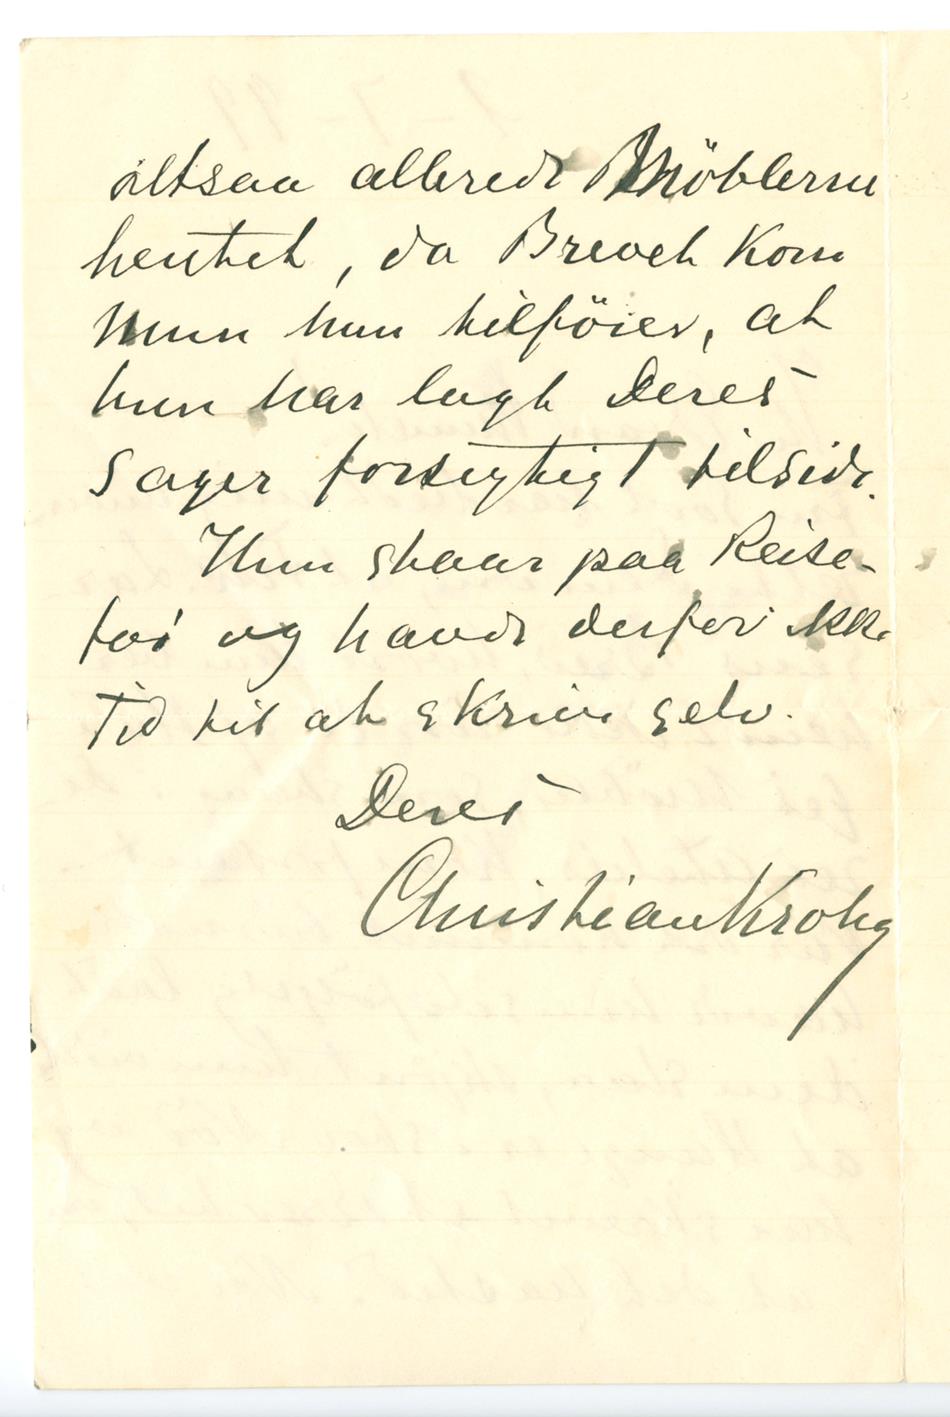 altsaa allerede Möblerne
hentet, da Brevet kom
Men hun tilföier, at
hun har lagt Deres
Sager forsigtigt tilside.
Hun staar paa Reise-
tøi og havde derfor ikke
Tid til at skrive selv.
Deres
Christian Krohg